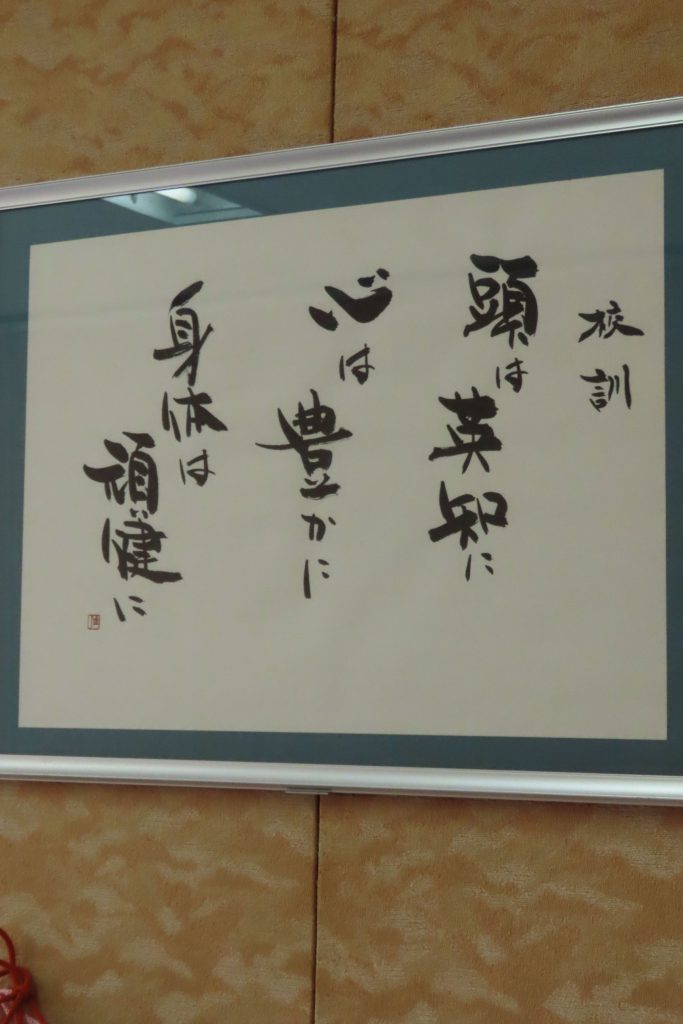 校訓
頭は英知に
心は豊かに
身体は頑健に